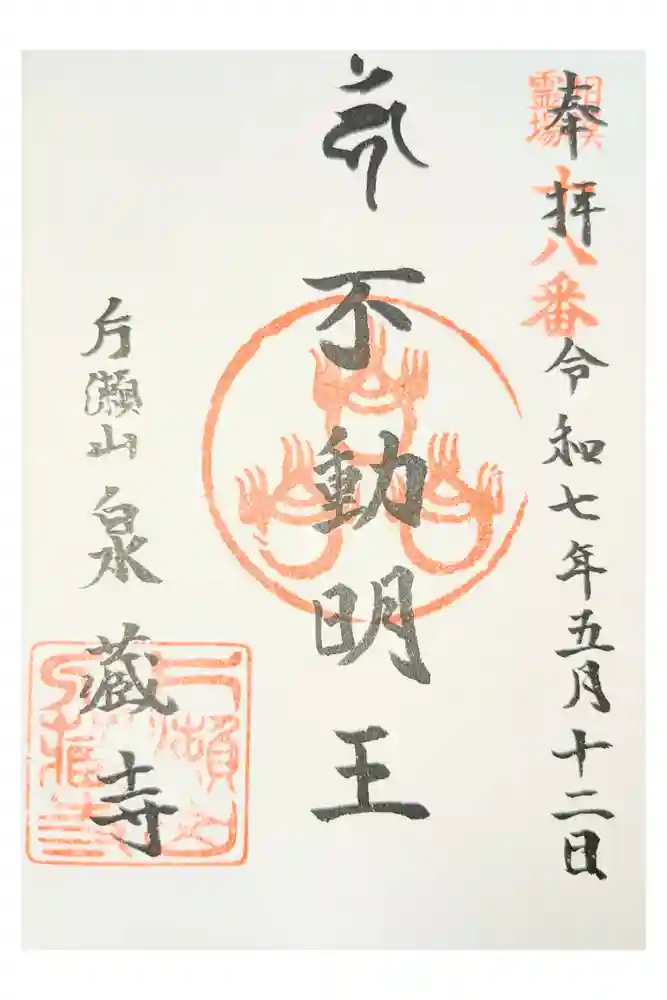 奉拝
令和七年五月十二日
相模
霊場
十八番
不動明王
片瀬山
泉蔵寺